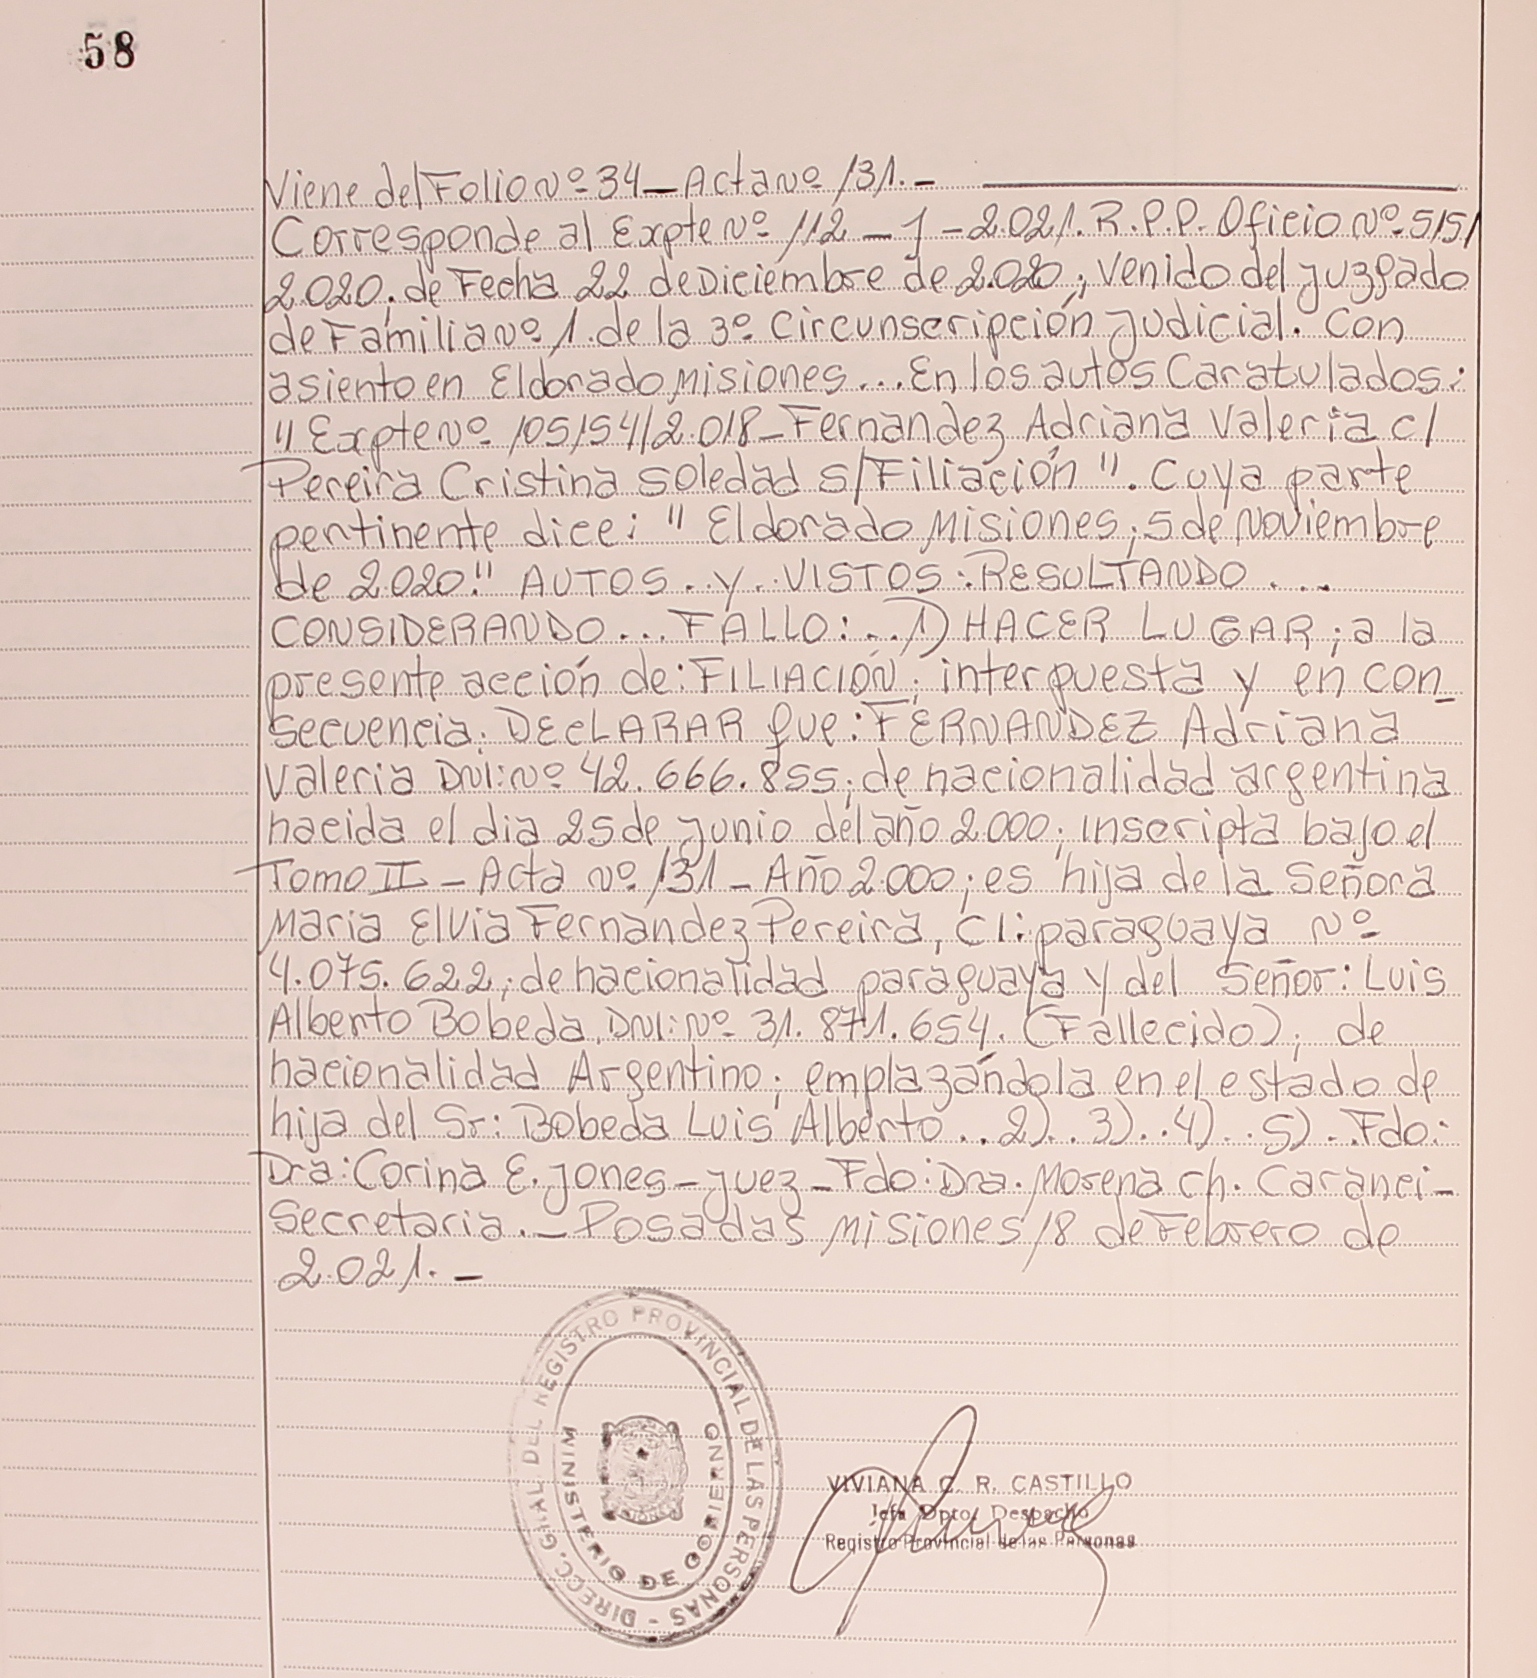 58
Viene del Folio Nº 34 - Acta Nº 131.-
Corresponde al Expte Nº 112 - J - 2.021. R.P.P. Oficio Nº 515/
2.020. de Fecha 22 de Diciembre de 2.020; venido del Juzgado
de Familia Nº 1. de la 3º Circunscripción Judicial. Con
asiento en Eldorado Misiones... En los autos Caratulados:
"Expte Nº 105154/2.018 - Fernandez Adriana Valeria c/
Pereira Cristina Soledad s/Filiación". Cuya parte
pentinente dice: "Eldorado Misiones; 5 de Noviembre
de 2.020." AUTOS..Y..VISTOS: RESULTANDO....
CONSIDERANDO... FALLO:...1) HACER LUGAR; a la
presente acción de: FILIACIÓN; interpuesta y en con_
secuencia; DECLARAR que: FERNANDEZ Adriana
Valeria DNI: Nº 42.666.855; de nacionalidad argentina
nacida el dia 25 de Junio del año 2.000; inscripta bajo el
Tomo II - Acta Nº 131 - Año 2.000; es hija de la Señora
Maria Elvia Fernandez Pereira, CI: paraguaya Nº
4.075.622; de nacionalidad paraguaya y del Señor: Luis
Alberto Bobeda, DNI: Nº 31.871.654. (Fallecido); de
nacionalidad Argentino; emplazándola en el estado de
hija del Sr: Bobeda Luis Alberto...2)..3)..4)..5)..Fdo:
Dra: Corina E. Jones - Juez - Fdo: Dra. Morena Ch. Caranci-
Secretaria.- Posadas Misiones 18 de Febrero de
2.021.-
DIRECC. GRAL. DEL REGISTRO PROVINCIAL DE LAS PERSONAS -
MINISTERIO DE GOBIERNO
VIVIANA C. R. CASTILLO
Jefa Dpto. Despacho
Registro Provincial de las Personas